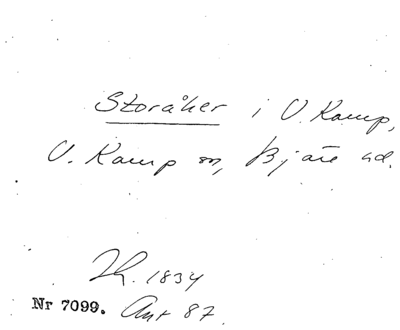 Storåker i V. Karup,
V. Karup sn, Bjäre hd.
Th. 1834
Nr 7099. Ant 87.